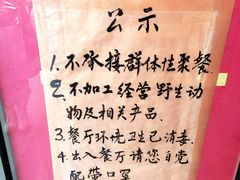 公示
1.不承接群体性聚餐
2.不加工经营野生动
物及相关产品.
3.餐厅环境卫生已消毒.
4.出入餐厅请您自觉
配带口罩